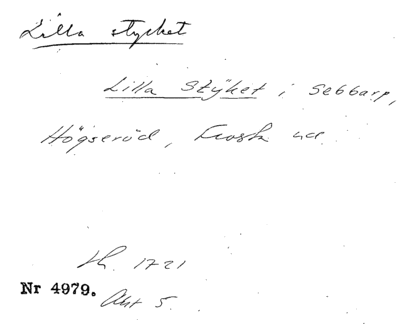 Lilla stycket
Lilla Stÿket i Sebbarp,
Högseröd, Frosta hd
Lh. 1721
Nr 4979.
Akt 5.